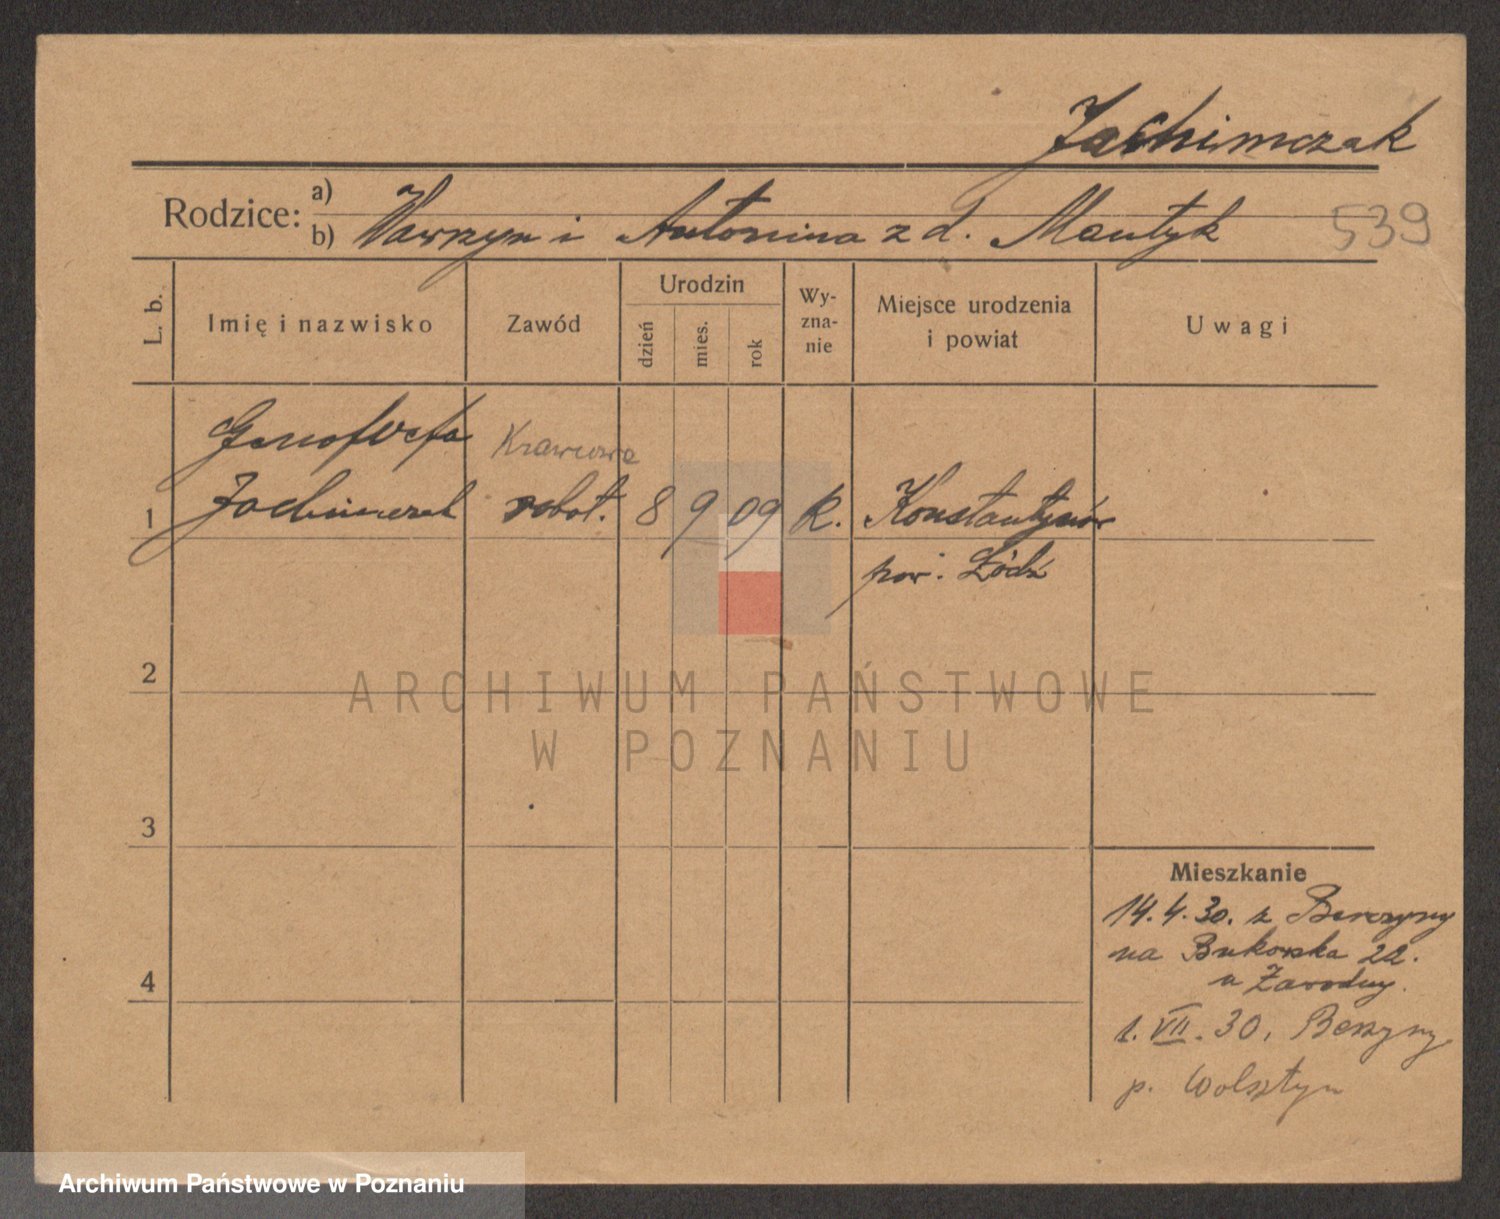 Jachimczak
Rodzice:
a)
b) Wawrzyn i Antonina z d. Mantyk
539
L. b.
Imię i nazwisko
Zawód
Urodzin
dzień
mies.
rok
Wy-
zna-
nie
Miejsce urodzenia
i powiat
Uwagi
Genofwefa
Krawcowa
1 Jachimczak robot. 8 9 09 k. Konstantynów
pow. Łódź
2
3
4
Mieszkanie
14.4.30. z Berzyny
na Bukowska 22.
u Zawodny.
1.VII.30. Berzyny
p. Wolsztyn
ARCHIWUM PAŃSTWOWE
W POZNANIU
Archiwum Państwowe w Poznaniu